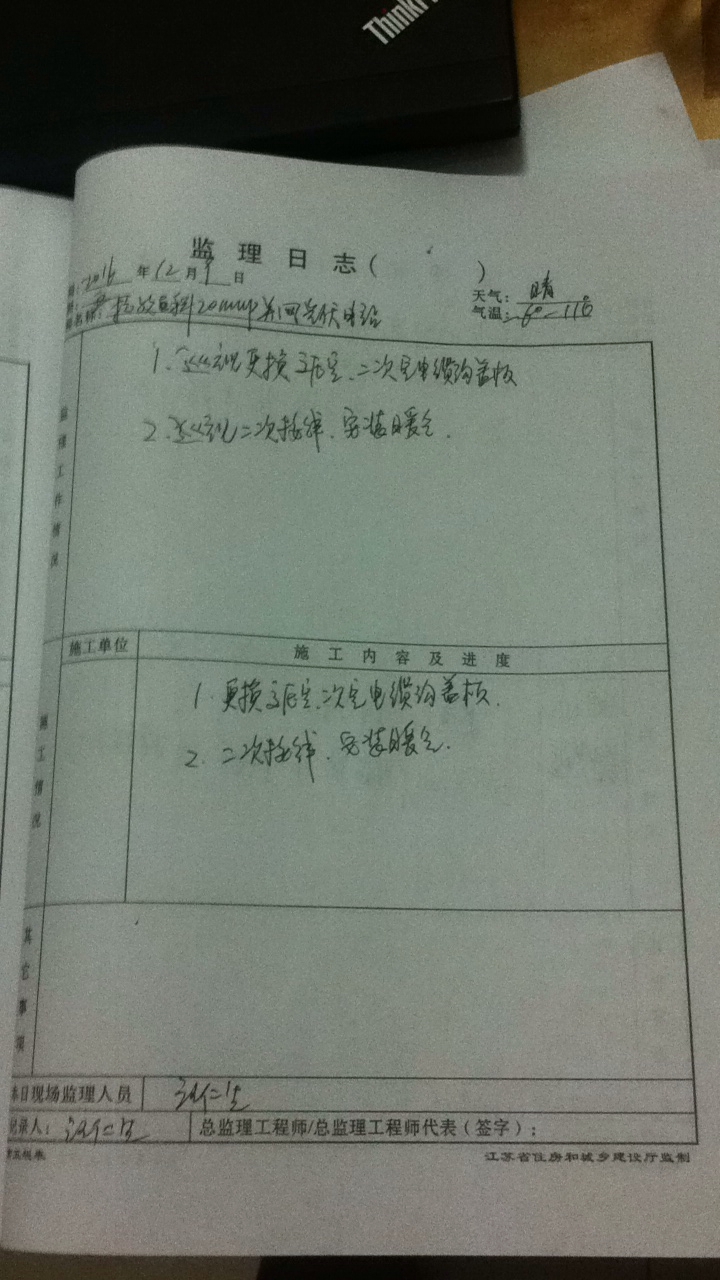 Think
监理日志( )
2016 年 12 月 9 日
天气: 晴
20MWP并网光伏电站
气温: -6°~11°
监理工作情况
1. 巡视更换高压室、二次室电缆沟盖板
2. 巡视二次接线、安装暖气.
施工单位 施工内容及进度
施工情况
1. 更换高压室、二次室电缆沟盖板.
2. 二次接线、安装暖气.
其它事项
本日现场监理人员
记录人: 总监理工程师/总监理工程师代表(签字):
江苏省住房和城乡建设厅监制